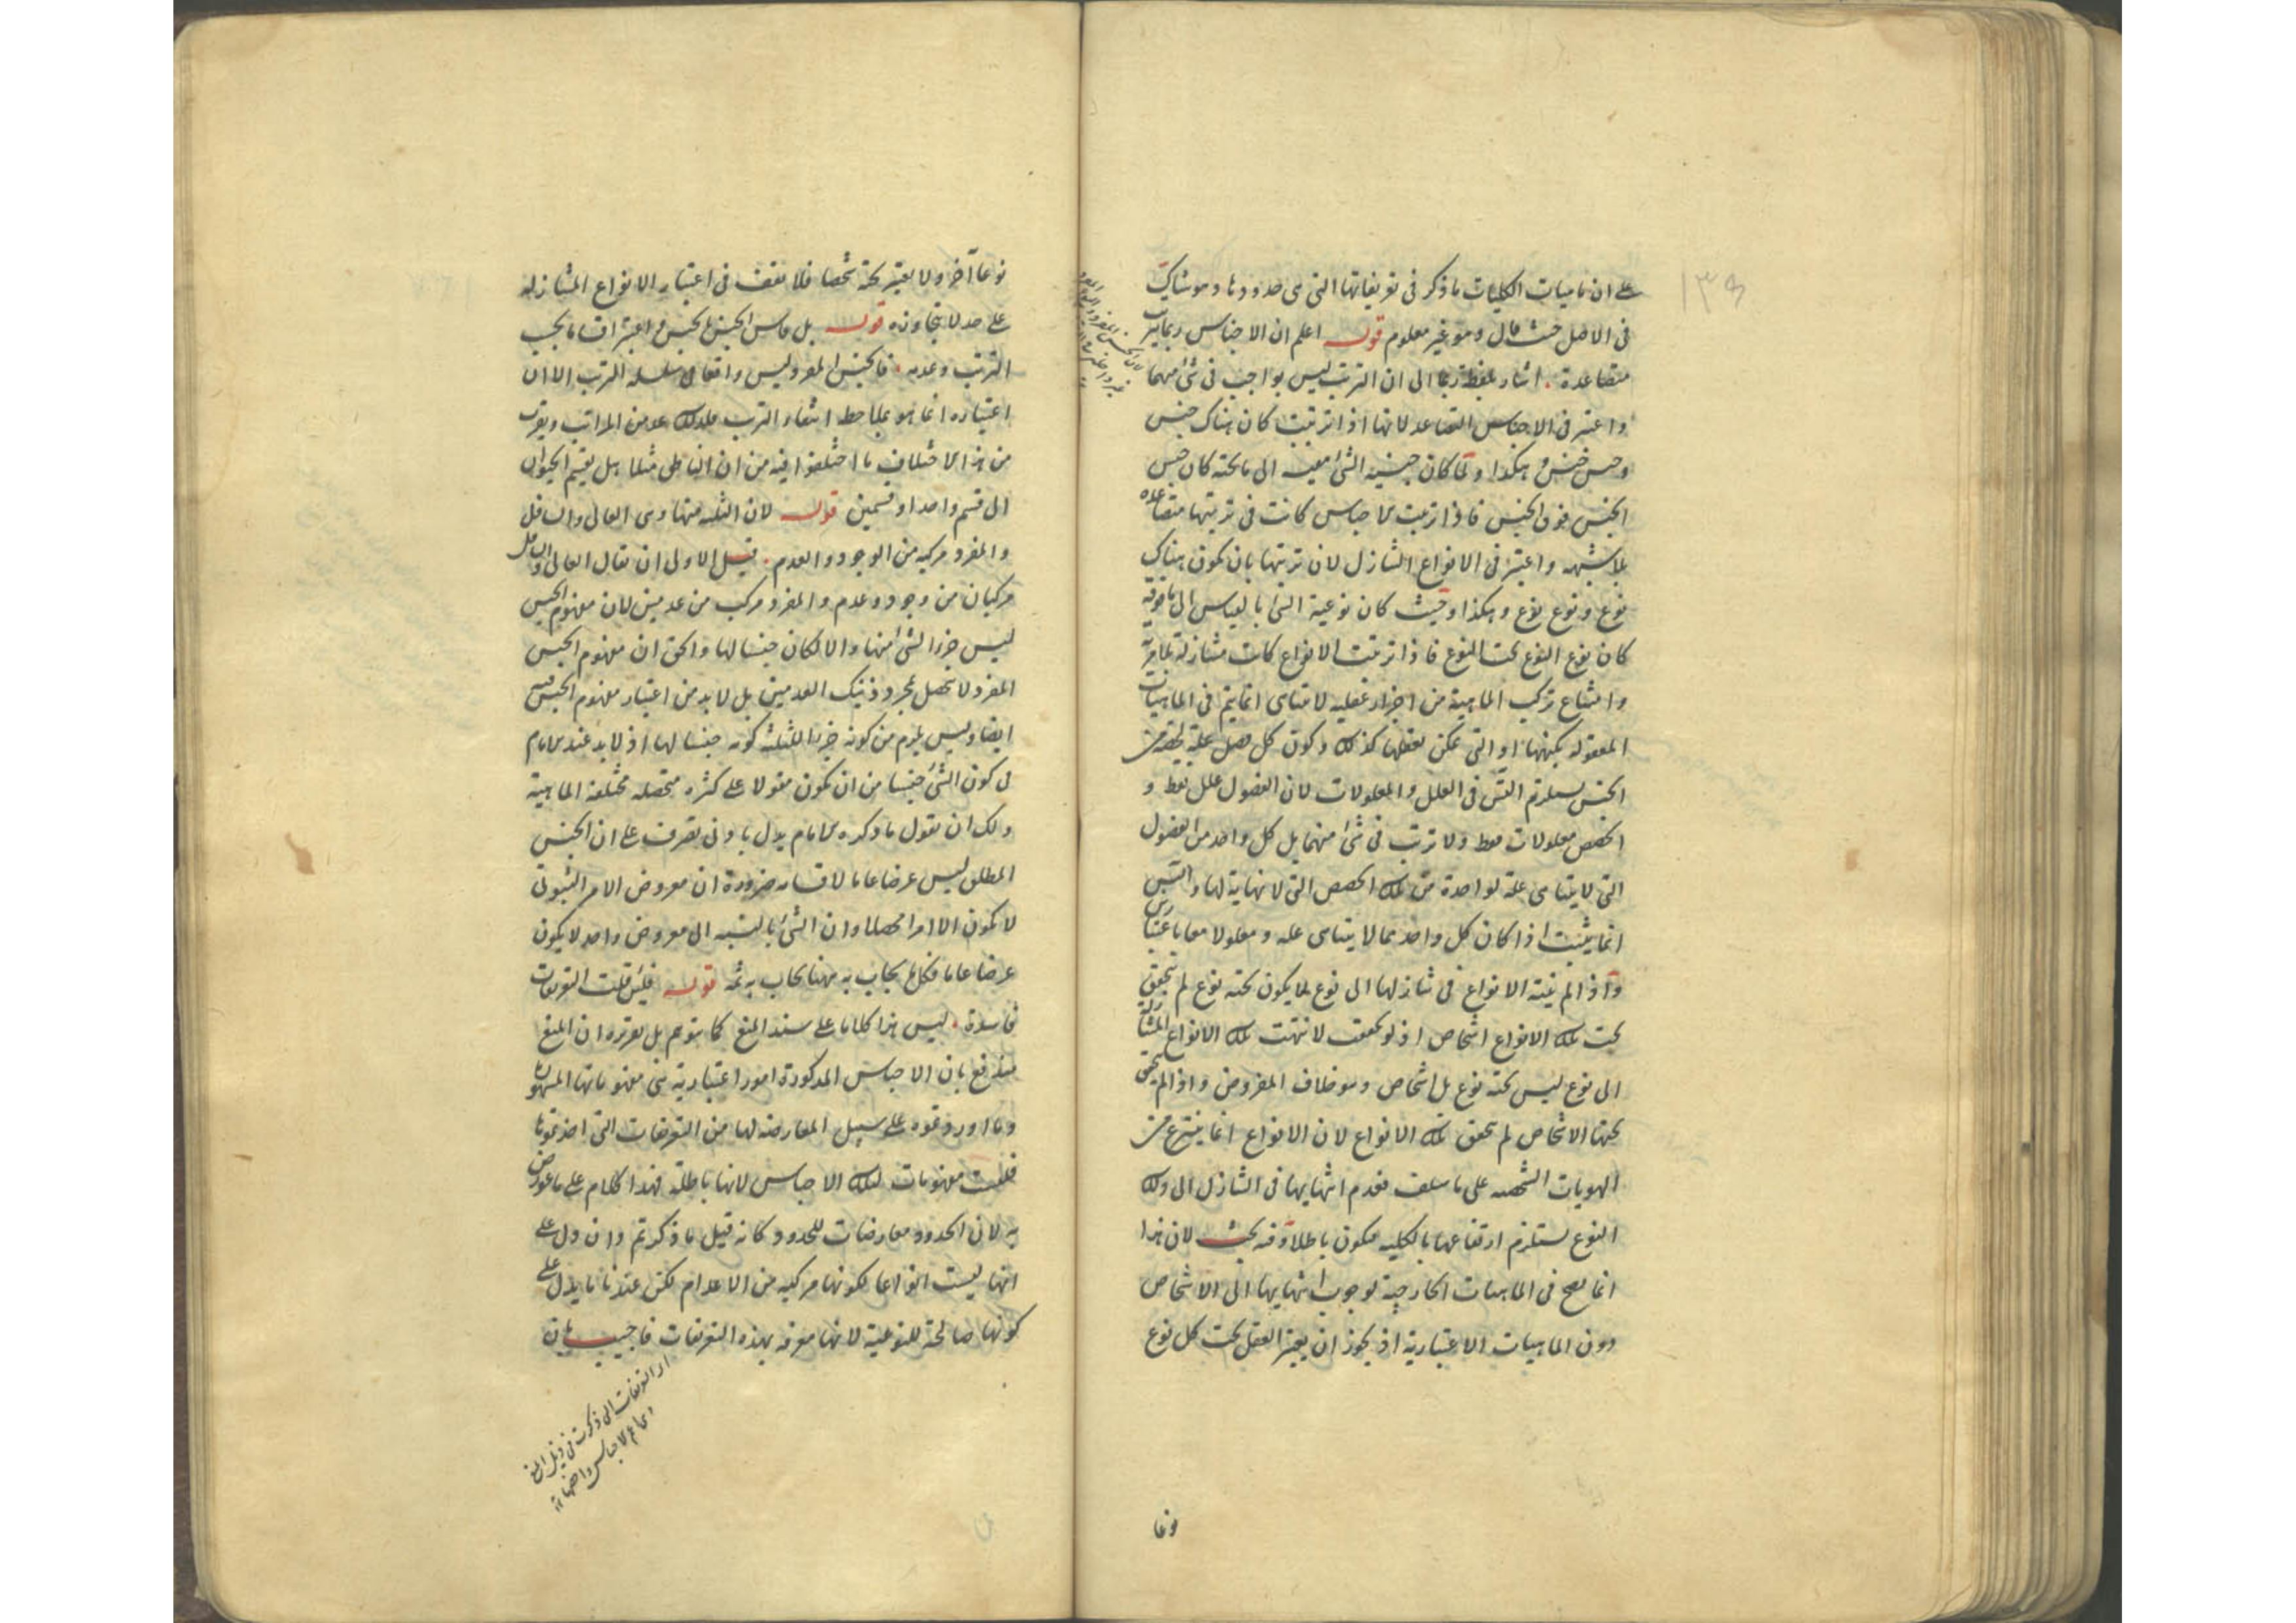 على ان ماهيات الكليات ما ذكر فى تعريفاتها التى هى حدودها وهو شاك
فى الاصل حيث قال وهو غير معلوم قوله اعلم ان الاجناس ربما تترتب
متصاعدة اشار بلفظ ربما الى ان الترتب ليس بواجب فى شئ منهما
واعتبر فى الاجناس التصاعد لانها اذا ترتبت كان هناك جنس
وجنس جنس وهكذا ولما كان جنسية الشئ مقيسة الى ما تحته كان جنس
الجنس فوق الجنس فاذا ترتبت الاجناس كانت فى ترتبها متصاعدة
بلا شبهه واعتبر فى الانواع التنازل لان ترتبها بان يكون هناك
نوع ونوع نوع وهكذا وحيث كان نوعية الشئ بالقياس الى ما فوقه
كان نوع النوع تحت النوع فاذا ترتبت الانواع كانت متنازلة
وامتناع تركب الماهية من اجزاء عقلية لا تتناهى انما يتم فى الماهيات
المعقولة بكنهها او التى يمكن تعقلها كذلك وكون كل فصل علة لحصة من
الجنس يستلزم التس فى العلل والمعلولات لان الفصول علل فقط و
الحصص معلولات فقط ولا ترتب فى شئ منهما بل كل واحد من الفصول
التى لا يتناهى علة لواحدة من تلك الحصص التى لا نهاية لها والتس
انما يثبت اذا كان كل واحد مما لا يتناهى علة ومعلولا معا باعتبارين
واذا لم ينته الانواع فى تنازلها الى نوع لا يكون تحته نوع لم يتحقق
تحت تلك الانواع اشخاص اذ لو تحققت لانتهت تلك الانواع المتنازلة
الى نوع ليس تحته نوع بل اشخاص وهو خلاف المفروض واذا لم يتحقق
تحتها الاشخاص لم تتحقق تلك الانواع لان الانواع انما ينتزع من
الهويات الشخصية على ما سلف فعدم انتهائها فى التنازل الى ذلك
النوع يستلزم ارتفاعها بالكلية فيكون باطلا وفيه بحث لان هذا
انما يصح فى الماهيات الخارجية لوجوب انتهائها الى الاشخاص
دون الماهيات الاعتبارية اذ يجوز ان يعتبر العقل تحت كل نوع
نوعا
نوعا آخر ولا يعتبر تحته شخصا فلا يقف فى اعتبار الانواع المتنازلة
على حد لا يتجاوزه قوله بل قاس الجنس بالجنس واعتبر اقسامه بحسب
الترتب وعدمه فالجنس المفرد ليس واقعا فى سلسلة الترتب الا ان
اعتباره انما هو بملاحظة انتفاء الترتب فلذلك عد من المراتب ويقرب
من هذا الاختلاف ما اختلفوا فيه من ان الناطق مثلا هل يقسم الحيوان
الى قسم واحد او قسمين قوله لان الثلثة منها وهى العالى والسافل
والمفرد مركبة من الوجود والعدم قيل الاولى ان يقال العالى والسافل
مركبان من وجود وعدم والمفرد مركب من عدمين لان مفهوم الجنس
ليس جزءا لشئ منها والا لكان جنسا لها والحق ان مفهوم الجنس
المفرد لا يحصل بمجرد ذينك العدمين بل لا بد من اعتبار مفهوم الجنس فيه
ايضا وليس يلزم من كونه جزءا للثلثة كونه جنسا لها اذ لا بد عند الامام
فى كون الشئ جنسا من ان يكون مقولا على كثرة متحصلة مختلفة الماهية
ولك ان تقول ما ذكره الامام يدل بادنى تصرف على ان الجنس
المطلق ليس عرضا عاما لاقسامه ضرورة ان معروض الامر الثبوتى
لا يكون الا امرا محصلا وان الشئ بالنسبة الى معروض واحد لا يكون
عرضا عاما فكل ما يجاب به ههنا يجاب به ثمه قوله فلئن قلت التعريفات
فاسدة ليس هذا كلاما على سند المنع كما يتوهم بل تقريره ان المنع
مندفع بان الاجناس المذكورة امور اعتبارية هى مفهوماتها المشهورة
وما اوردتموه على سبيل المعارضة لها من التعريفات التى اخذتموها
فليست مفهومات لتلك الاجناس لانها باطلة فهذا كلام على ما عورض
به لان الحدود معارضات للحدود كانه قيل ما ذكرتم وان دل على
انها ليست انواعا لكونها مركبة من الاعدام لكن عندنا ما يدل على
كونها صالحة للنوعية لانها معرفة بهذه التعريفات فاجيب بان